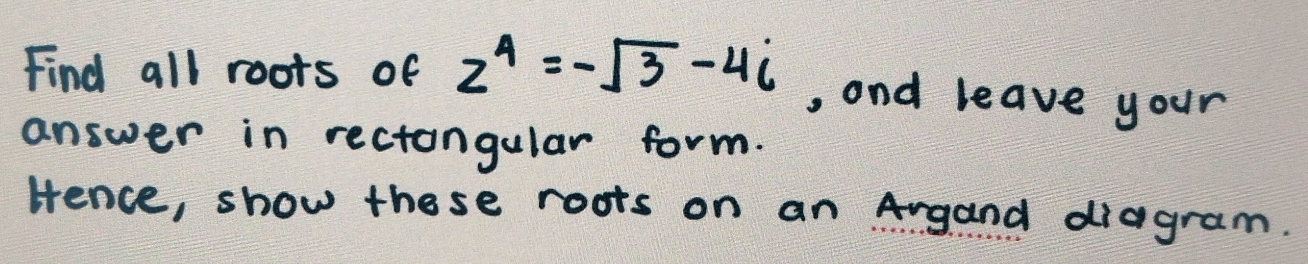 Find all roots of z⁴ = -√3 - 4i, and leave your
answer in rectangular form.
Hence, show these roots on an Argand diagram.